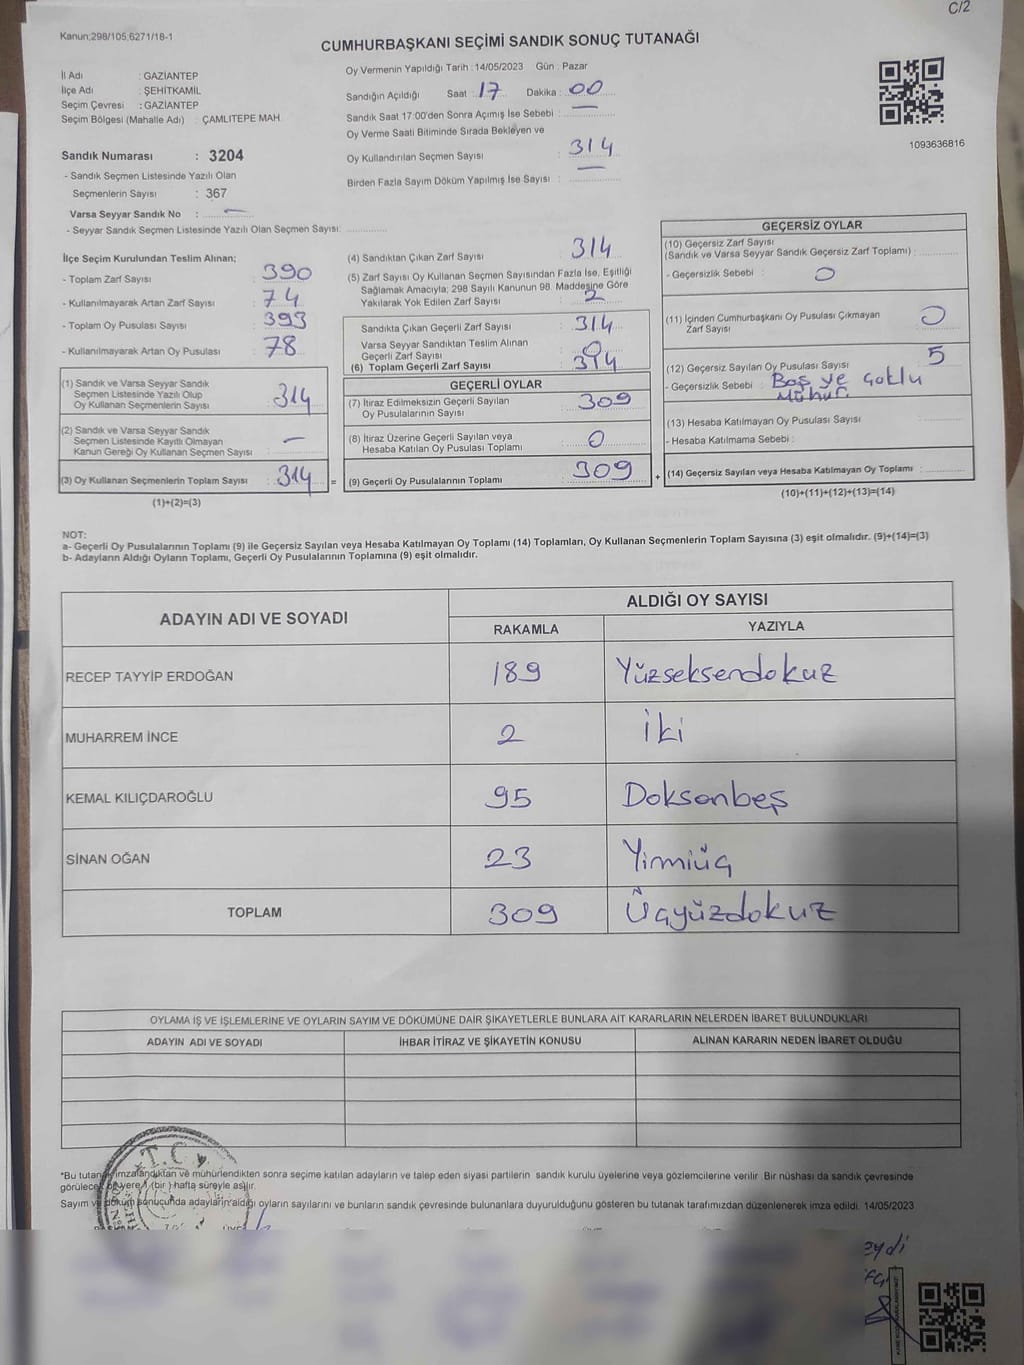 C/2
Kanun;298/105,6271/18-1
CUMHURBAŞKANI SEÇİMİ SANDIK SONUÇ TUTANAĞI
İl Adı : GAZİANTEP
İlçe Adı : ŞEHİTKAMİL
Seçim Çevresi : GAZİANTEP
Seçim Bölgesi (Mahalle Adı) : ÇAMLITEPE MAH
Sandık Numarası : 3204
- Sandık Seçmen Listesinde Yazılı Olan
Seçmenlerin Sayısı : 367
Varsa Seyyar Sandık No : –
- Seyyar Sandık Seçmen Listesinde Yazılı Olan Seçmen Sayısı:
Oy Vermenin Yapıldığı Tarih : 14/05/2023 Gün : Pazar
Sandığın Açıldığı Saat : 17 Dakika : 00
Sandık Saat 17:00'den Sonra Açımış İse Sebebi : —
Oy Verme Saati Bitiminde Sırada Bekleyen ve
Oy Kullandırılan Seçmen Sayısı : 314
Birden Fazla Sayım Döküm Yapılmış İse Sayısı : —
1093636816
İlçe Seçim Kurulundan Teslim Alınan;
- Toplam Zarf Sayısı : 390
- Kullanılmayarak Artan Zarf Sayısı : 74
- Toplam Oy Pusulası Sayısı : 393
- Kullanılmayarak Artan Oy Pusulası : 78
(1) Sandık ve Varsa Seyyar Sandık
Seçmen Listesinde Yazılı Olup
Oy Kullanan Seçmenlerin Sayısı : 314
(2) Sandık ve Varsa Seyyar Sandık
Seçmen Listesinde Kayıtlı Olmayan
Kanun Gereği Oy Kullanan Seçmen Sayısı : –
(3) Oy Kullanan Seçmenlerin Toplam Sayısı : 314 =
(1)+(2)=(3)
(4) Sandıktan Çıkan Zarf Sayısı : 314
(5) Zarf Sayısı Oy Kullanan Seçmen Sayısından Fazla İse, Eşitliği
Sağlamak Amacıyla; 298 Sayılı Kanunun 98. Maddesine Göre
Yakılarak Yok Edilen Zarf Sayısı : 2
Sandıkta Çıkan Geçerli Zarf Sayısı : 314
Varsa Seyyar Sandıktan Teslim Alınan
Geçerli Zarf Sayısı : 0
(6) Toplam Geçerli Zarf Sayısı : 314
GEÇERLİ OYLAR
(7) İtiraz Edilmeksizin Geçerli Sayılan
Oy Pusulalarının Sayısı : 309
(8) İtiraz Üzerine Geçerli Sayılan veya
Hesaba Katılan Oy Pusulası Toplamı : 0
(9) Geçerli Oy Pusulalarının Toplamı : 309 +
GEÇERSİZ OYLAR
(10) Geçersiz Zarf Sayısı
(Sandık ve Varsa Seyyar Sandık Geçersiz Zarf Toplamı) :
- Geçersizlik Sebebi : 0
(11) İçinden Cumhurbaşkanı Oy Pusulası Çıkmayan
Zarf Sayısı : 0
(12) Geçersiz Sayılan Oy Pusulası Sayısı : 5
- Geçersizlik Sebebi : Boş ve Çoklu
Mühür.
(13) Hesaba Katılmayan Oy Pusulası Sayısı :
- Hesaba Katılmama Sebebi :
(14) Geçersiz Sayılan veya Hesaba Katılmayan Oy Toplamı :
(10)+(11)+(12)+(13)=(14)
NOT:
a- Geçerli Oy Pusulalarının Toplamı (9) ile Geçersiz Sayılan veya Hesaba Katılmayan Oy Toplamı (14) Toplamları, Oy Kullanan Seçmenlerin Toplam Sayısına (3) eşit olmalıdır. (9)+(14)=(3)
b- Adayların Aldığı Oyların Toplamı, Geçerli Oy Pusulalarının Toplamına (9) eşit olmalıdır.
ADAYIN ADI VE SOYADI
ALDIĞI OY SAYISI
RAKAMLA YAZIYLA
RECEP TAYYİP ERDOĞAN 189 Yüzseksendokuz
MUHARREM İNCE 2 İki
KEMAL KILIÇDAROĞLU 95 Doksanbeş
SİNAN OĞAN 23 Yirmiüç
TOPLAM 309 Üçyüzdokuz
OYLAMA İŞ VE İŞLEMLERİNE VE OYLARIN SAYIM VE DÖKÜMÜNE DAİR ŞİKAYETLERLE BUNLARA AİT KARARLARIN NELERDEN İBARET BULUNDUKLARI
ADAYIN ADI VE SOYADI İHBAR İTİRAZ VE ŞİKAYETİN KONUSU ALINAN KARARIN NEDEN İBARET OLDUĞU
T.C.
*Bu tutanak imzalandıktan ve mühürlendikten sonra seçime katılan adayların ve talep eden siyasi partilerin sandık kurulu üyelerine veya gözlemcilerine verilir. Bir nüshası da sandık çevresinde
görülecek bir yere 1 (bir) hafta süreyle asılır.
Sayım ve döküm sonucunda adayların aldığı oyların sayılarını ve bunların sandık çevresinde bulunanlara duyurulduğunu gösteren bu tutanak tarafımızdan düzenlenerek imza edildi. 14/05/2023